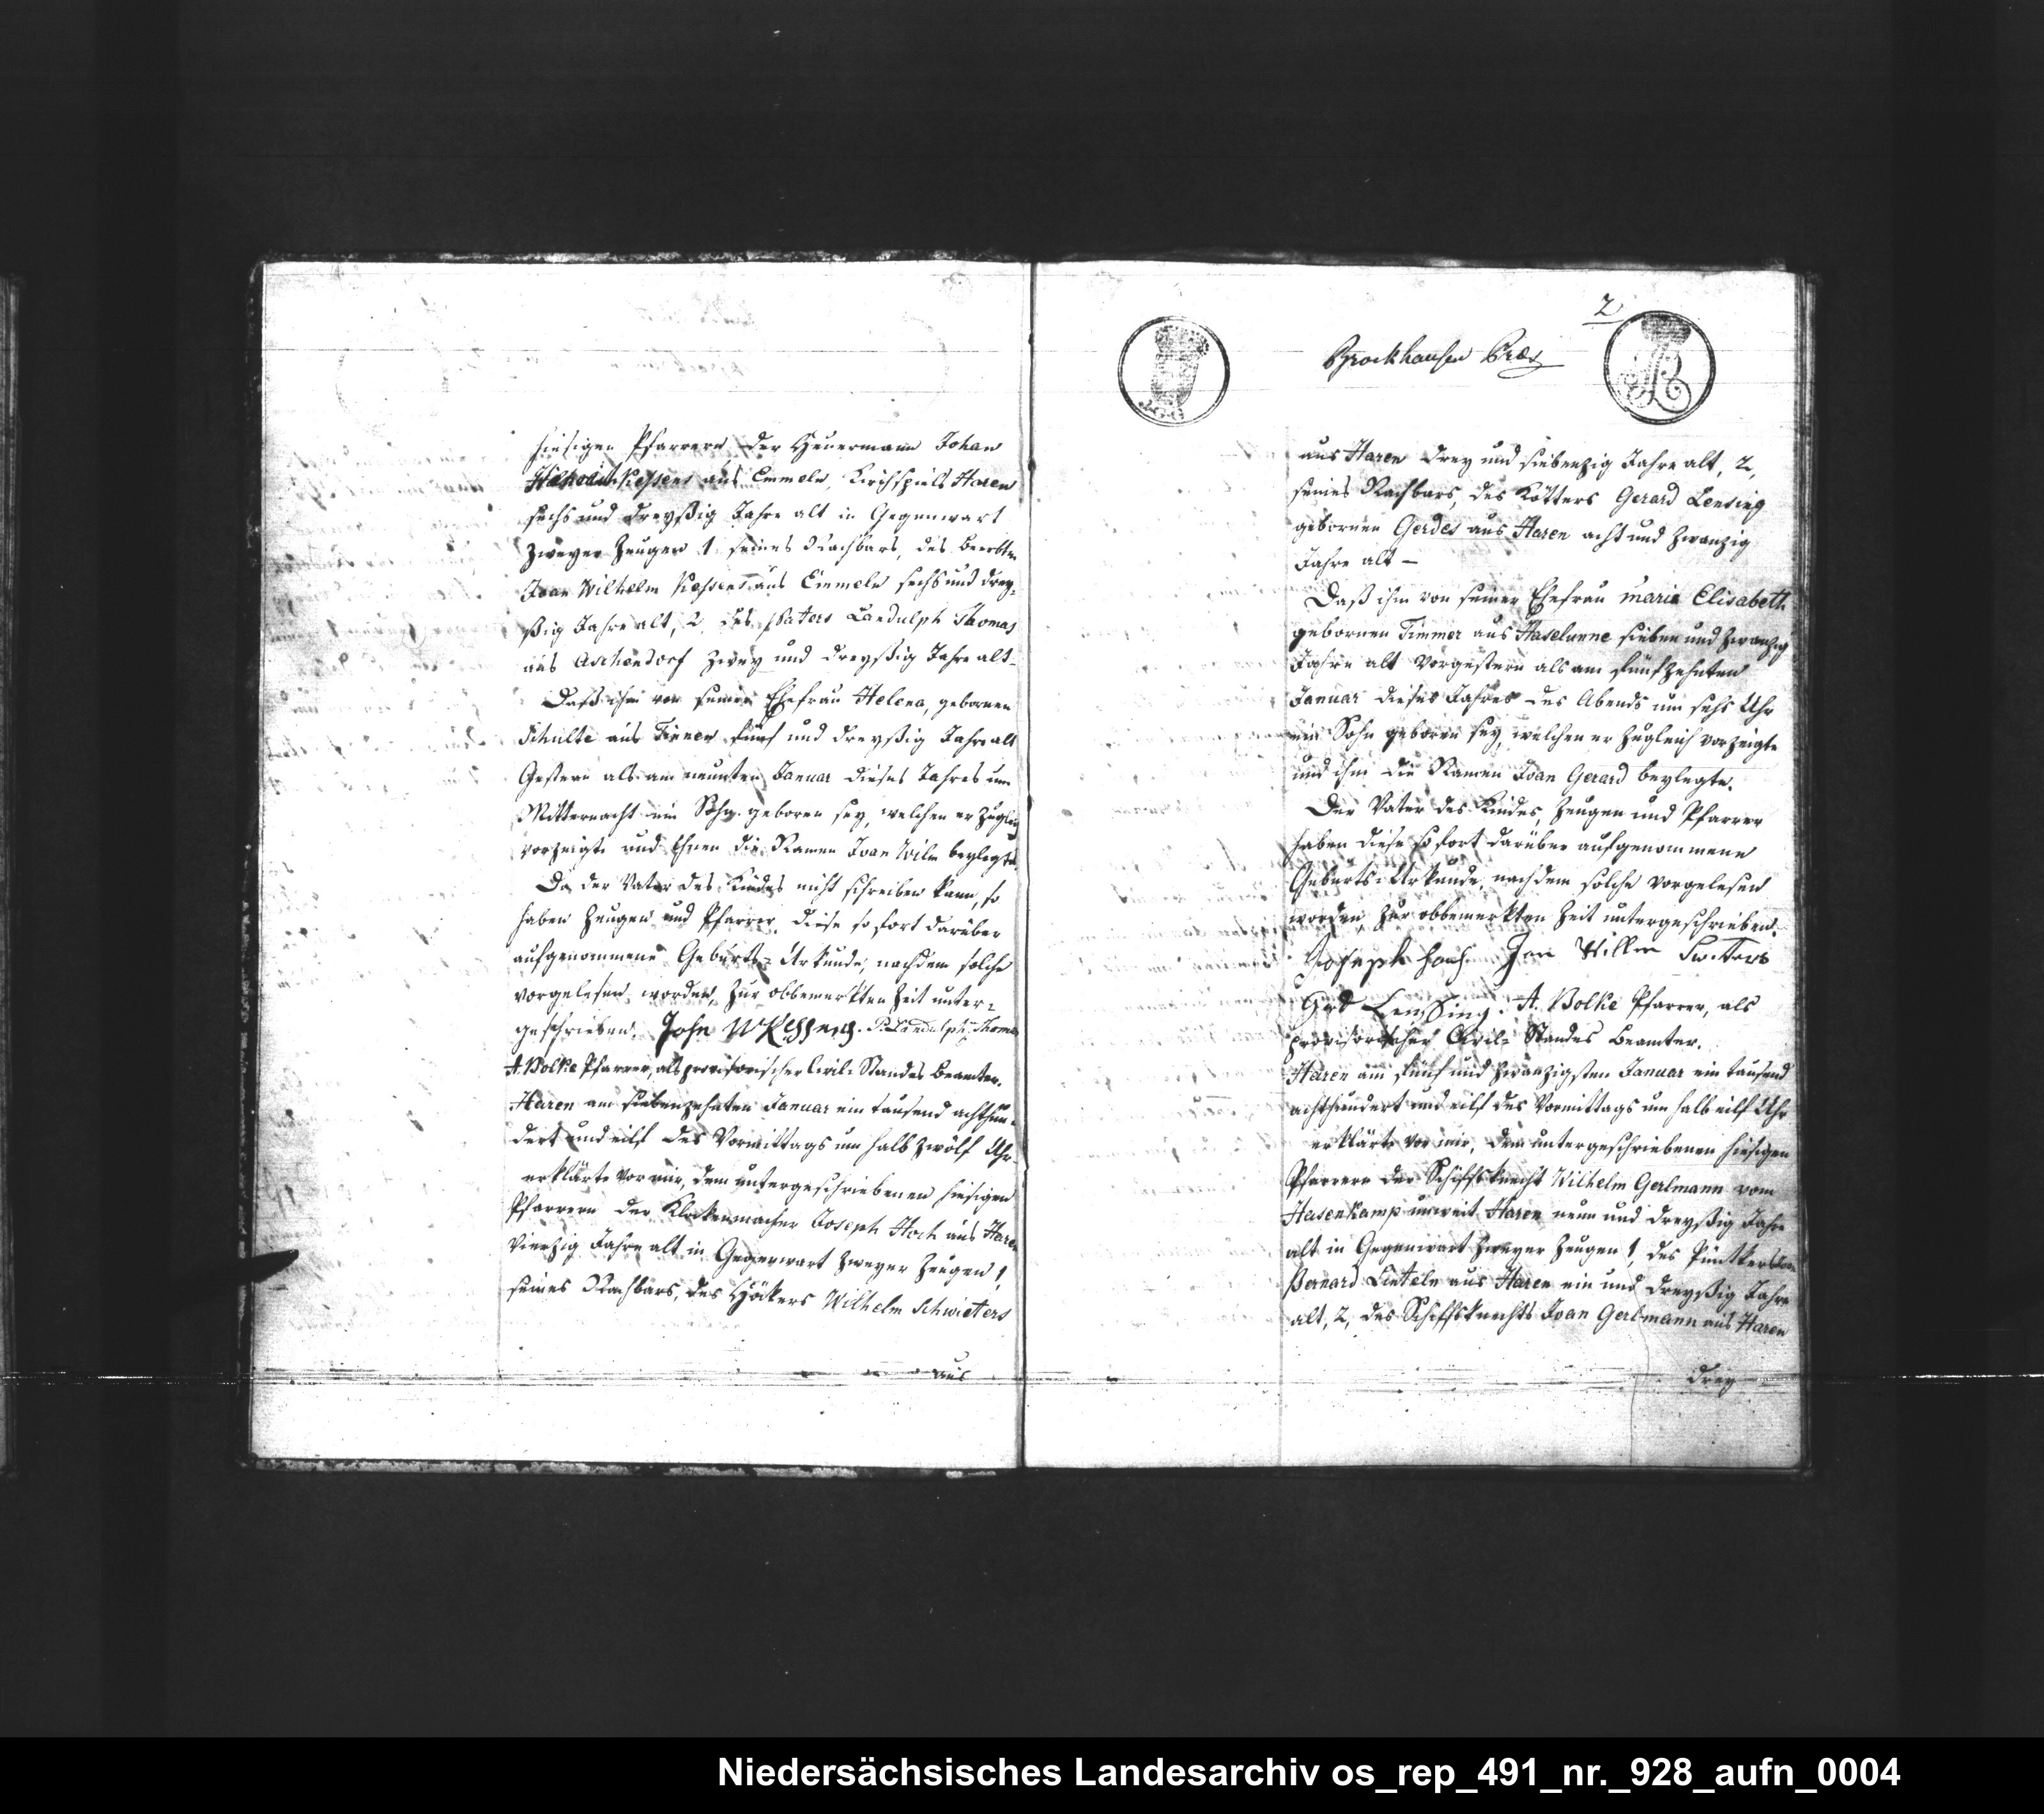 hiesigen Pfarrern der Heuermann Johan
Kessens aus Emmeln, Kirchspiels Haren
sechs und dreyßig Jahre alt in Gegenwart
zweyer Zeugen 1, seines Nachbars, des beerbten
Joan Wilhelm Kessens aus Emmeln sechs und drey-
ßig Jahre alt, 2, des Paters Landulph Thomas
aus Aschendorf zwey und dreyßig Jahre alt-
Daß ihm von seiner Ehefrau Helena, gebornen
Schulte aus Tinnen fünf und dreyßig Jahre alt
Gestern als am neunten Januar dieses Jahres um
Mitternacht ein Sohn geboren sey, welchen er zugleich
vorzeigte und Ihnen die Namen Joan Wilm beylegte.
Da der Vater des Kindes nicht schreiben kann, so
haben Zeugen und Pfarrer diese so fort darüber
aufgenommene Geburts-Urkunde, nachdem solche
vorgelesen worden, zur obbemerkten Zeit unter-
geschrieben. John W Kessens. P. Landulph Thomas
A. Bolke Pfarrer, als provisorischer Civil-Standes Beamter.
Haren am siebenzehnten Januar ein tausend achthun-
dert und eilf des Vormittags um halb zwölf Uhr
erklärte vor mir, dem untergeschriebenen hiesigen
Pfarrern der Klockenmacher Joseph Hoch aus Haren
vierzig Jahre alt in Gegenwart zweyer Zeugen 1,
seines Nachbars, des Höckers Wilhelm Schwieters
aus
2
Brockhausen Præs
aus Haren drey und siebenzig Jahre alt, 2,
seines Nachbars, des Kötters Gerard Lensing
gebornen Gerdes aus Haren acht und zwanzig
Jahre alt –
Daß ihm von seiner Ehefrau Maria Elisabeth
gebornen Timmer aus Haselunne sieben und zwanzig
Jahre alt vorgestern als am fünfzehnten
Januar dieses Jahres des Abends um sechs Uhr
ein Sohn geboren sey, welchen er zugleich vorzeigte
und ihm die Namen Joan Gerard beylegte.
Der Vater des Kindes, Zeugen und Pfarrer
haben diese so fort darüber aufgenommene
Geburts-Urkunde, nachdem solche vorgelesen
worden, zur obbemerkten Zeit untergeschrieben.
Joseph Hoch Jan Willm Switters
Grd Lenssing. A. Bolke Pfarrer, als
provisorischer Civil-Standes Beamter.
Haren am fünf und zwanzigsten Januar ein tausend
achthundert und eilf des Vormittags um halb eilf Uhr
erklärte vor mir, dem untergeschriebenen hiesigen
Pfarrern der Schiffsknecht Wilhelm Gerlmann vom
Hasenkamp unweit Haren neun und dreyßig Jahre
alt in Gegenwart zweyer Zeugen 1, des Püntkers Joan
Bernard Linteln aus Haren ein und dreyßig Jahre
alt, 2, des Schiffsknechts Joan Gerlmann aus Haren
drey
Niedersächsisches Landesarchiv os_rep_491_nr._928_aufn_0004